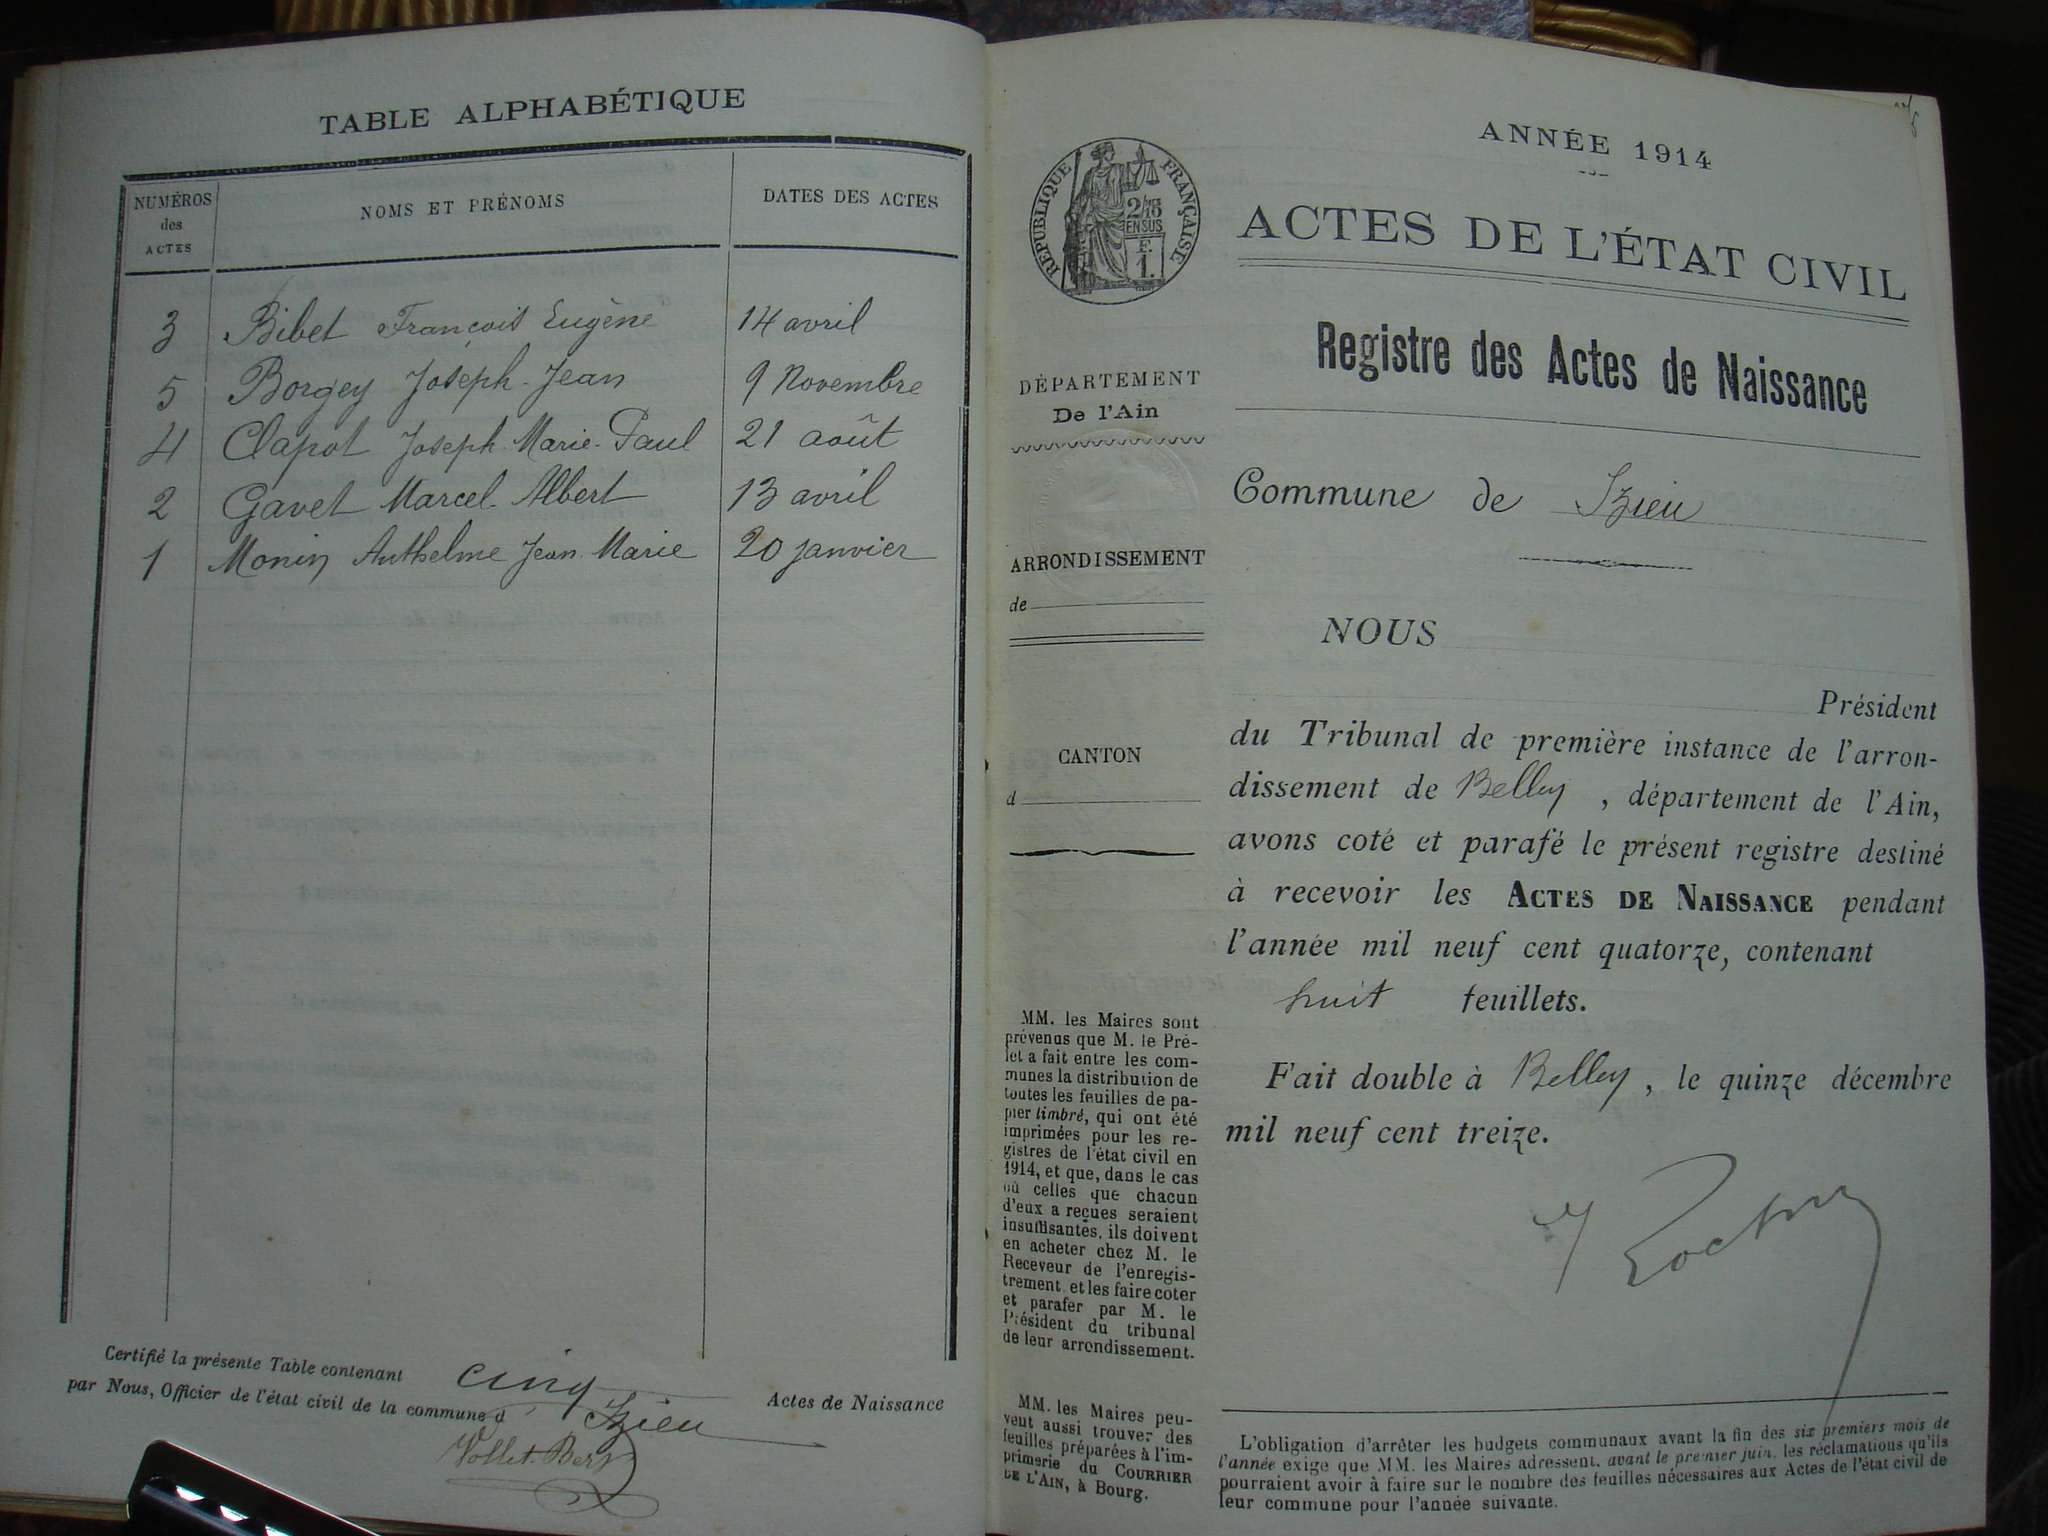 TABLE ALPHABÉTIQUE
NUMÉROS
des
ACTES
NOMS ET PRÉNOMS
DATES DES ACTES
3 Bibet François Eugène 14 avril
5 Borgey Joseph-Jean 9 Novembre
4 Clapot Joseph-Marie-Paul 21 août
2 Gavet Marcel-Albert 13 avril
1 Monin Anthelme Jean-Marie 20 janvier
Certifié la présente Table contenant cinq Actes de Naissance
par Nous, Officier de l'état civil de la commune d'Izieu
ANNÉE 1914
ACTES DE L'ÉTAT CIVIL
RÉPUBLIQUE FRANÇAISE
2/10
EN SUS
F.
1.
Registre des Actes de Naissance
DÉPARTEMENT
De l'Ain
Commune de Izieu
ARRONDISSEMENT
de
CANTON
d
NOUS
Président
du Tribunal de première instance de l'arron-
dissement de Belley, département de l'Ain,
avons coté et parafé le présent registre destiné
à recevoir les ACTES DE NAISSANCE pendant
l'année mil neuf cent quatorze, contenant
huit feuillets.
Fait double à Belley, le quinze décembre
mil neuf cent treize.
MM. les Maires sont
prévenus que M. le Pré-
fet a fait entre les com-
munes la distribution de
toutes les feuilles de pa-
pier timbré, qui ont été
imprimées pour les re-
gistres de l'état civil en
1914, et que, dans le cas
où celles que chacun
d'eux a reçues seraient
insuffisantes, ils doivent
en acheter chez M. le
Receveur de l'enregis-
trement et les faire coter
et parafer par M. le
Président du tribunal
de leur arrondissement.
MM. les Maires peu-
vent aussi trouver des
feuilles préparées à l'im-
primerie du COURRIER
DE L'AIN, à Bourg.
L'obligation d'arrêter les budgets communaux avant la fin des six premiers mois de
l'année exige que MM. les Maires adressent, avant le premier juin, les réclamations qu'ils
pourraient avoir à faire sur le nombre des feuilles nécessaires aux Actes de l'état civil de
leur commune pour l'année suivante.